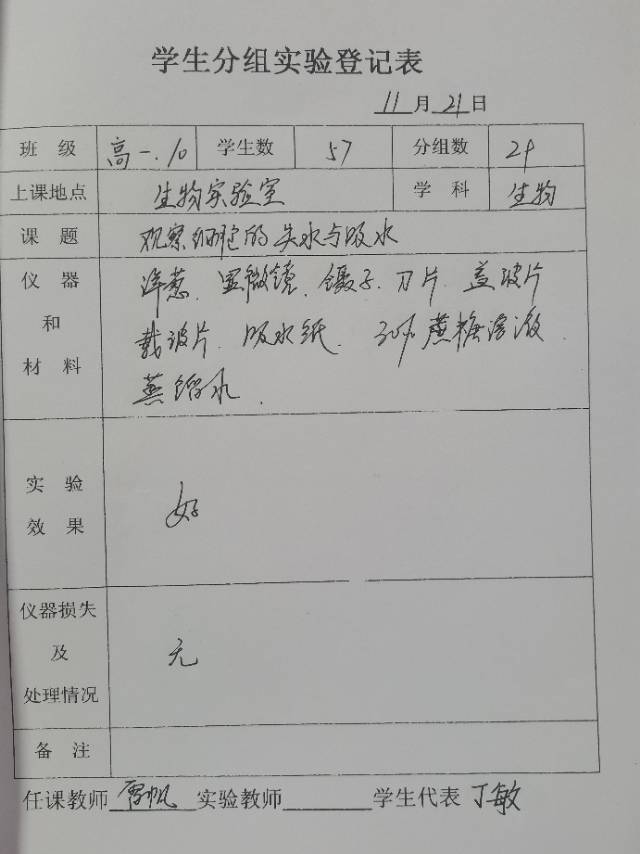 学生分组实验登记表
11月21日
班 级 高一.10 学生数 57 分组数 29
上课地点 生物实验室 学 科 生物
课 题 观察细胞的失水与吸水
仪 器 和 材 料 洋葱、显微镜、镊子、刀片、盖玻片
载玻片、吸水纸、30%蔗糖溶液、
蒸馏水.
实 验 效 果 好
仪器损失 及 处理情况 无
备 注
任课教师 实验教师 学生代表 丁敏